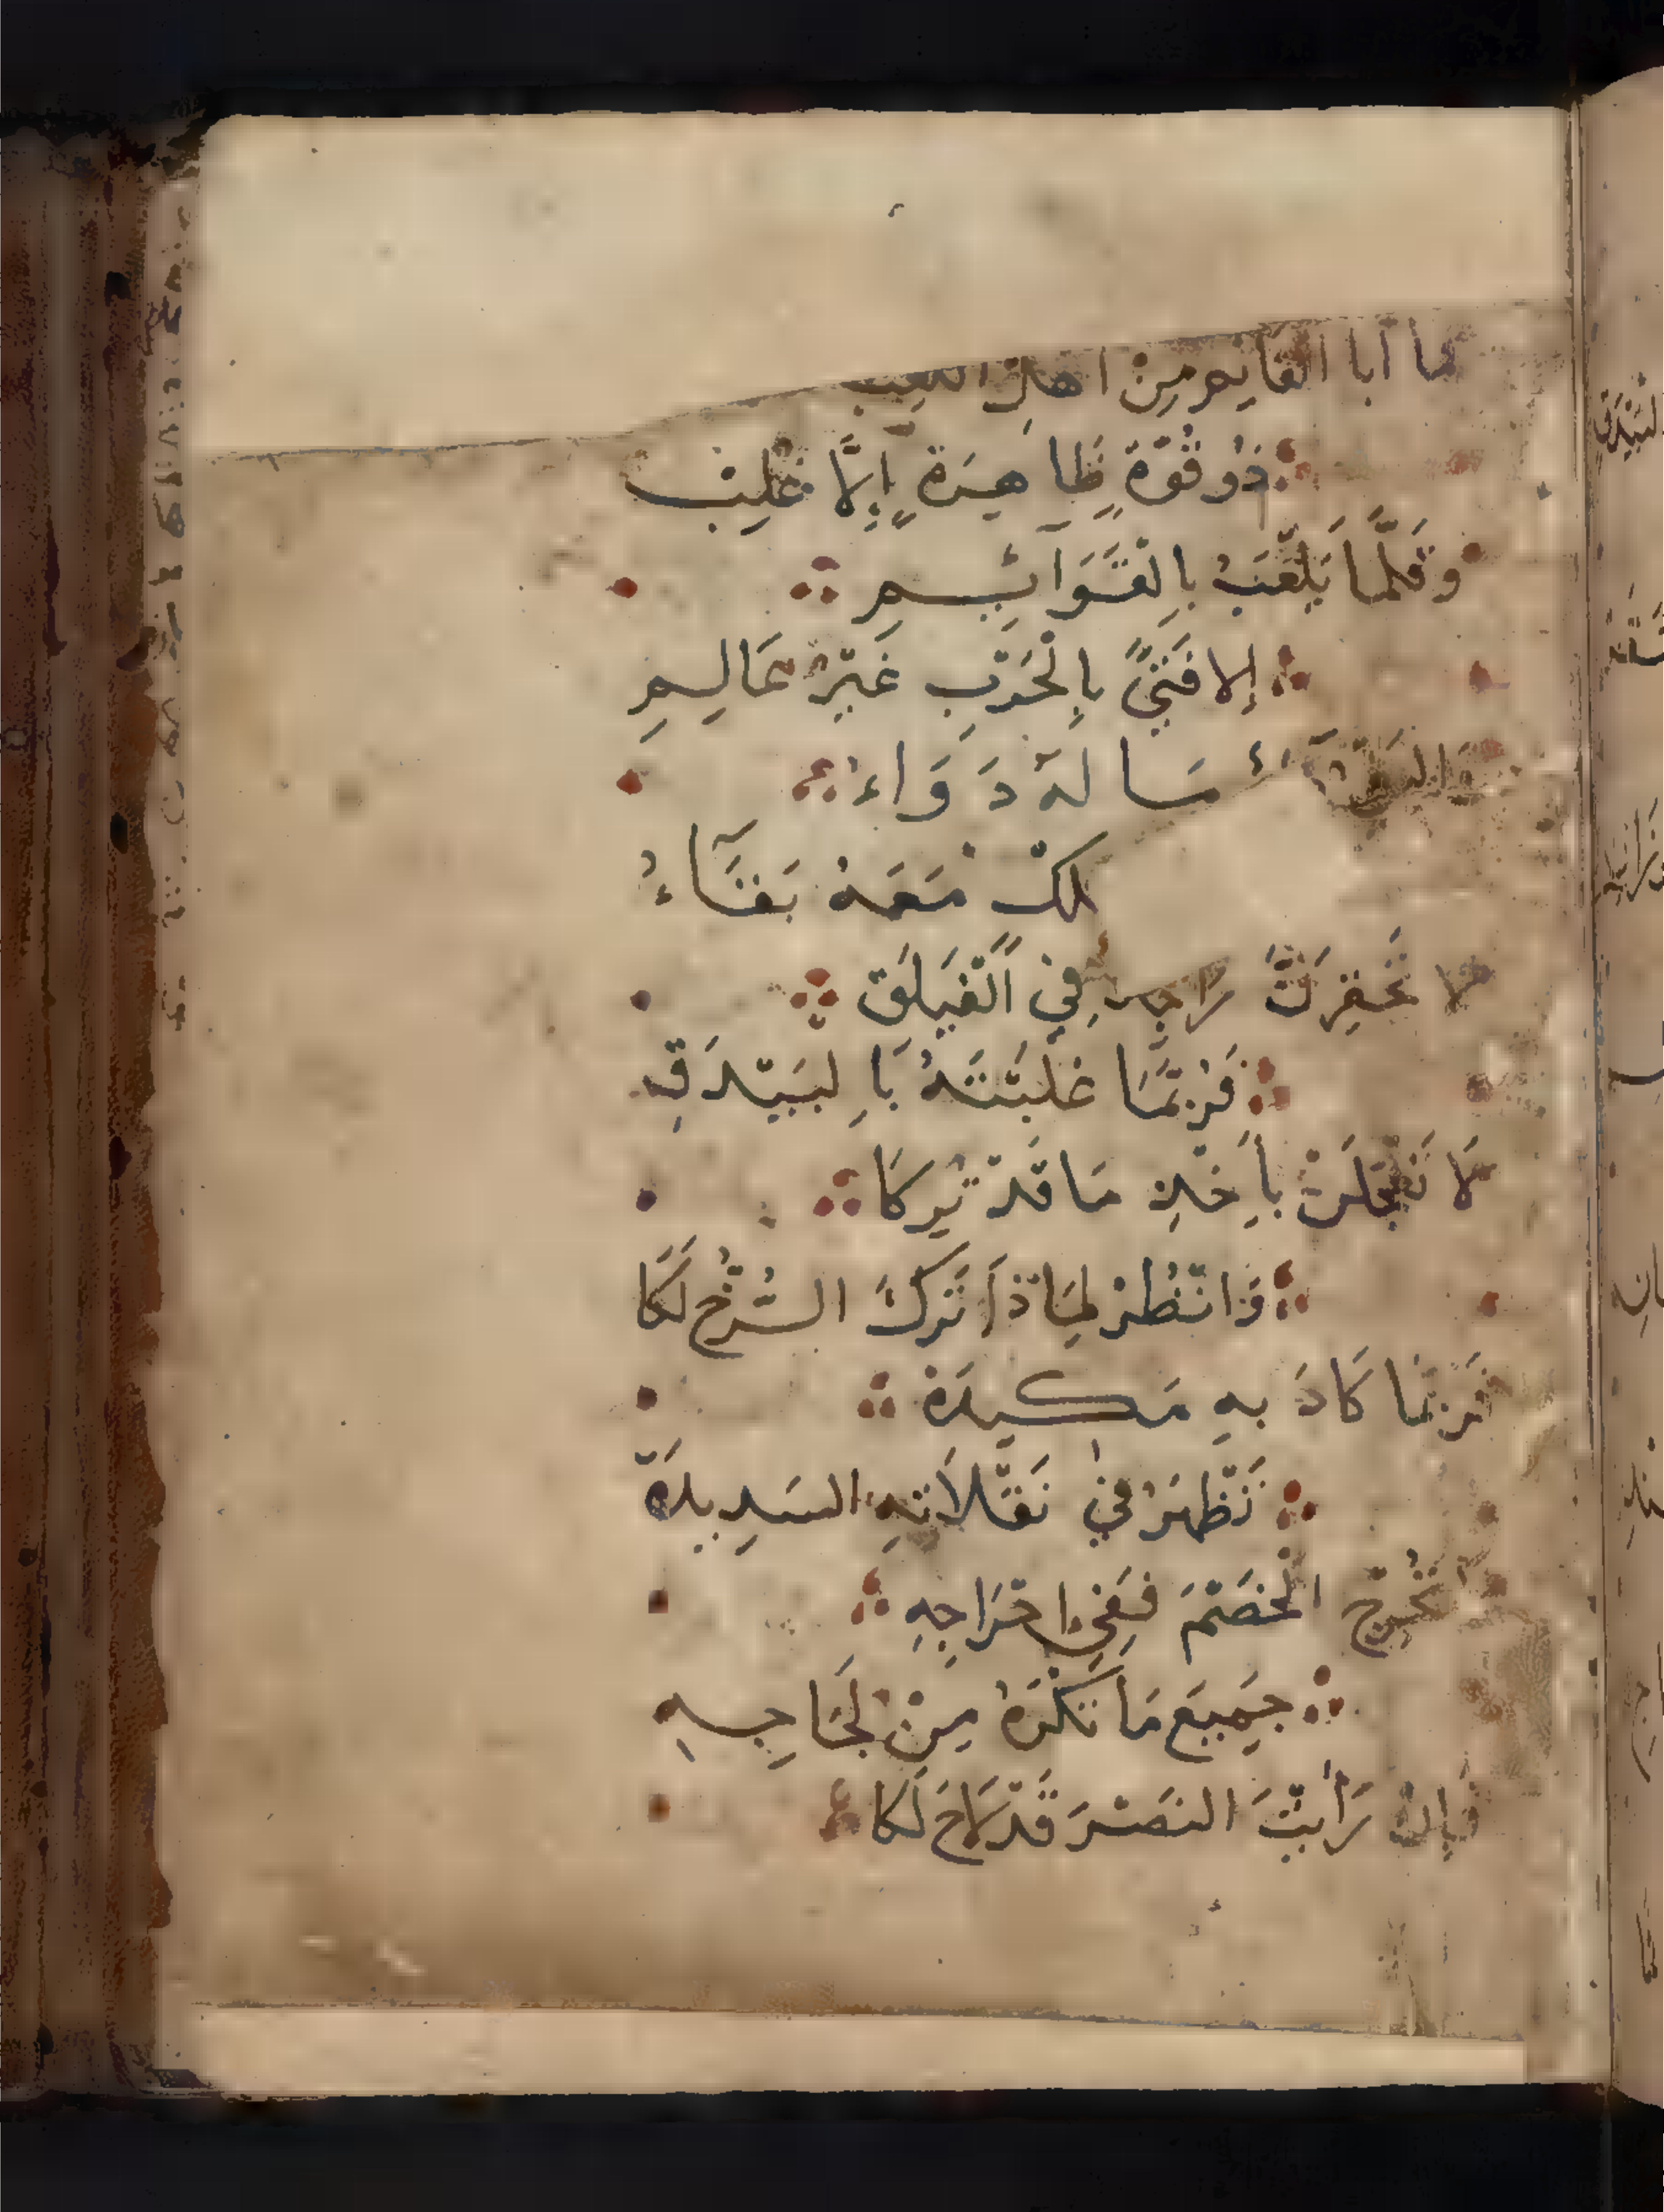 ما أبا القايم من أهل اللعب
ذُو قُوَّةٍ ظَاهِرَةٍ إِلَّا غُلِبْ
وَقَلَّمَا يَلْعَبُ بِالْقَوَآئِمِ
إلا فَتىً بِالْحَرْبِ غَيْرُ عَالِمِ
مَا لَهُ دَوَاءُ
لك مَعَهُ بَقَآءُ
لا تَحْقِرَنَّ فِي الْفَيْلَقِ
فَرُبَّمَا غَلَبْتَهُ بِالبَيْدَقِ
لَا تَعْجَلَنْ بِأَخْذِ مَا قَدْ تُرِكَا
وَانْظُرْ لِمَاذَا تَرَكَ الرُّخَّ لَكَا
فَرُبَّمَا كَادَ بِهِ مَكِيدَهْ
تَظْهَرُ فِي نَقَلَاتِهِ السَدِيدَهْ
الْخَصْمَ فَفِي إِخْرَاجِهِ
جَمِيعَ مَا تَكْرَهُ مِنْ لَجَاجِهِ
فَإِنْ رَأَيْتَ النَصْرَ قَدْ لَاحَ لَكَا